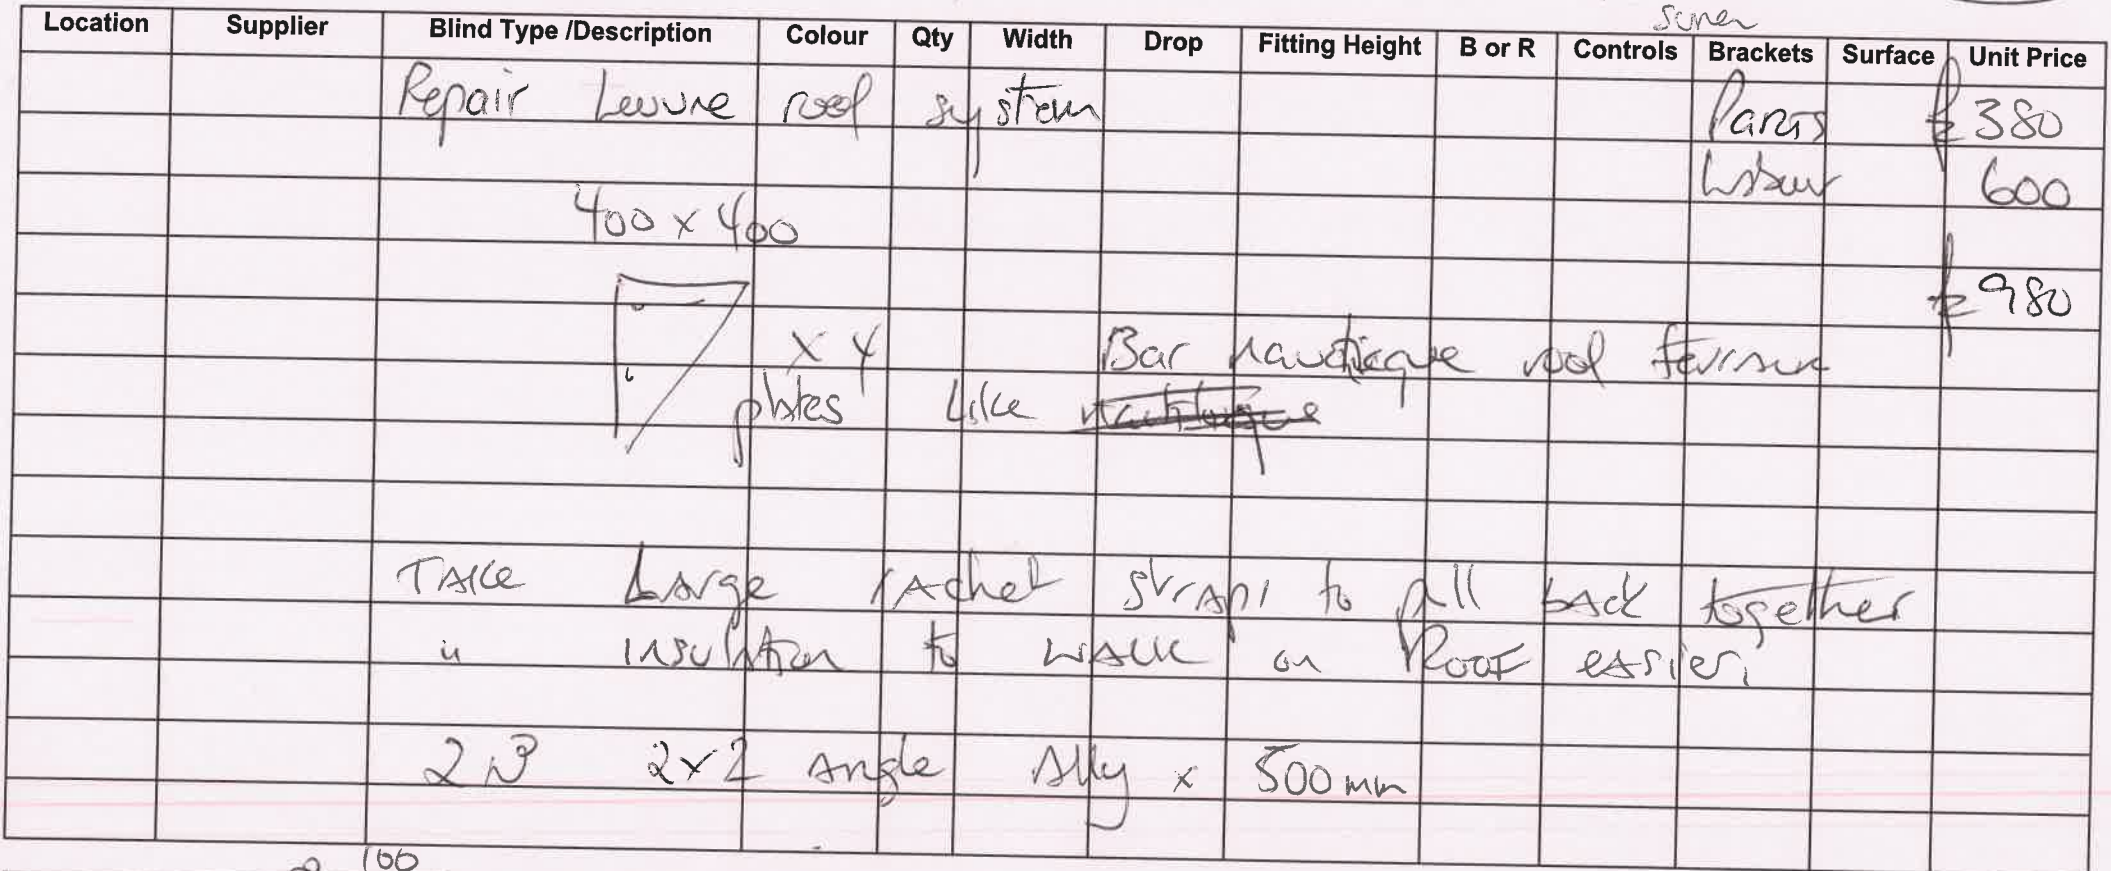 Location Supplier Blind Type /Description Colour Qty Width Drop Fitting Height B or R Controls Brackets Surface Unit Price
Repair Louvre roof system Parts £ 380
Labour 600
400 x 400
£ 980
x 4 Bar nautique roof
plates like nautique
TAKE LArge rAchet strAps to pull bAck together
" insulAtion to WALK on ROOF eAsier,
2 2x2 Angle Ally x 500mm
100